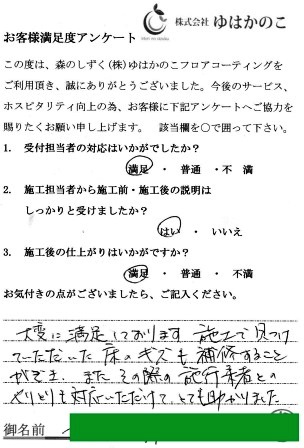 株式会社 ゆはかのこ
お客様満足度アンケート
この度は、森のしずく(株)ゆはかのこフロアコーティングを
ご利用頂き、誠にありがとうございました。今後のサービス、
ホスピタリティ向上の為、お客様に下記アンケートへご協力を
賜りたくお願い申し上げます。 該当欄を○で囲って下さい。
1. 受付担当者の対応はいかがでしたか?
満足 ・ 普通 ・ 不 満
2. 施工担当者から施工前・施工後の説明は
しっかりと受けましたか?
はい ・ いいえ
3. 施工後の仕上がりはいかがですか?
満足 ・ 普通 ・ 不満
お気付きの点がございましたら、ご記入ください。
大変に満足しております 施工で見つけ
ていただいた床のキズも補修すること
ができ、また その際の施行業者との
やりとりも対応いただけて、とても助かりました
御名前